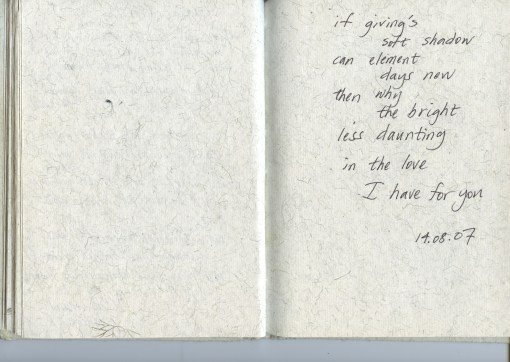 if giving's
soft shadow
can element
days now
then why
the bright
less daunting
in the love
I have for you
14.08.07